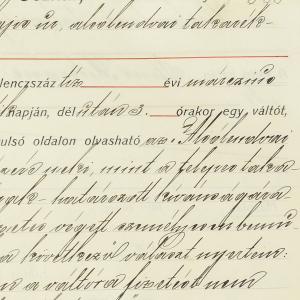 úr, alsólendvai takarék-
lencszáz tíz évi márczius
napján, dél után 3. órakor egy váltót,
ulsó oldalon olvasható az: Alsólendvai
neki, mint a felperes taka-
határozott kívánságára
végett személyem
a következő választ nyertem:
a váltóra fizetést nem